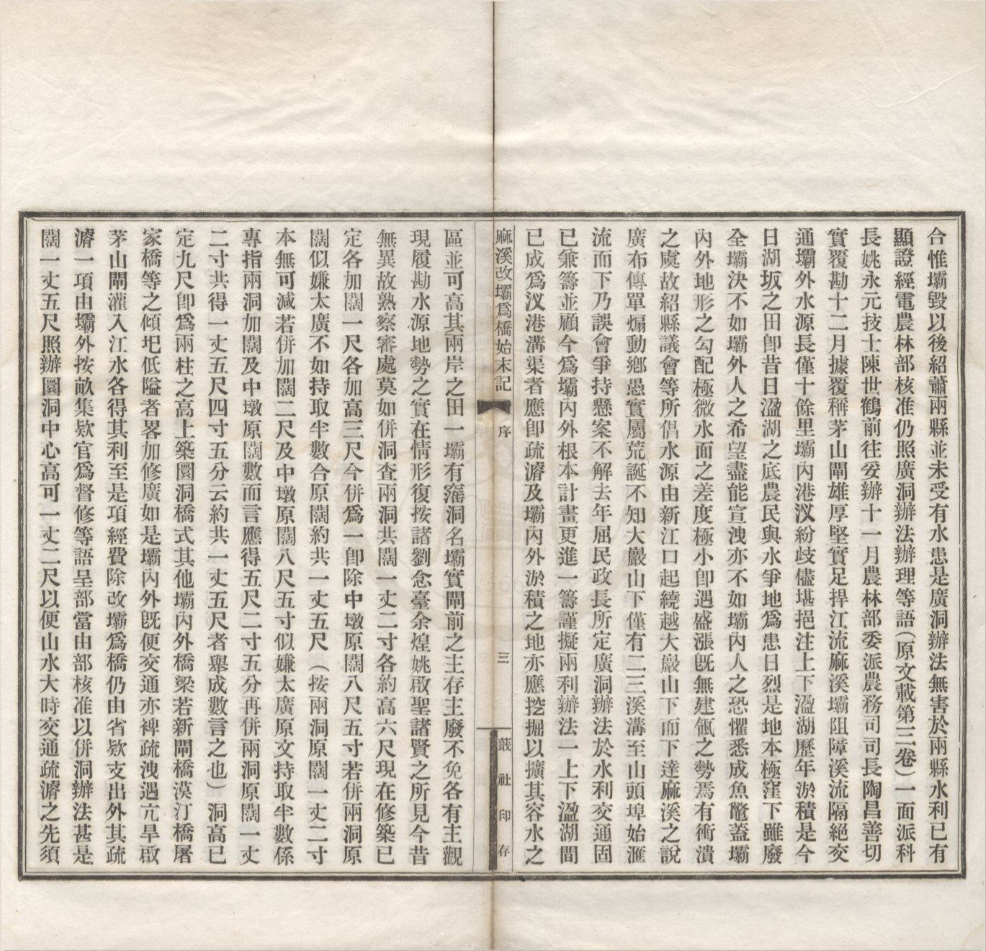 合惟壩毀以後紹蕭兩縣並未受有水患是廣洞辦法無害於兩縣水利已有
顯證經電農林部核准仍照廣洞辦法辦理等語(原文載第三卷)一面派科
長姚永元技士陳世鶴前往妥辦十一月農林部委派農務司司長陶昌善切
實覆勘十二月據覆稱茅山閘雄厚堅實足捍江流麻溪壩阻障溪流隔絕交
通壩外水源長僅十餘里壩內港汊紛歧儘堪挹注上下湓湖歷年淤積是今
日湖坂之田卽昔日湓湖之底農民與水爭地爲患日烈是地本極窪下雖廢
全壩決不如壩外人之希望盡能宣洩亦不如壩內人之恐懼悉成魚鼈蓋壩
內外地形之勾配極微水面之差度極小卽遇盛漲旣無建瓴之勢焉有衝潰
之處故紹縣議會等所倡水源由新江口起繞越大巖山下而下達麻溪之說
廣布傳單煽動鄉愚實屬荒誕不知大巖山下僅有二三溪溝至山頭埠始滙
流而下乃誤會爭持懸案不解去年屈民政長所定廣洞辦法於水利交通固
已兼籌並顧今爲壩內外根本計畫更進一籌謹擬兩利辦法一上下湓湖間
已成爲汊港溝渠者應卽疏濬及壩內外淤積之地亦應挖掘以擴其容水之
麻溪改壩爲橋始末記 序 三 蕺社印存
區並可高其兩岸之田一壩有藩洞名壩實閘前之主存主廢不免各有主觀
現履勘水源地勢之實在情形復按諸劉念臺余煌姚啟聖諸賢之所見今昔
無異故熟察審處莫如併洞查兩洞共闊一丈二寸各約高六尺現在修築已
定各加闊一尺各加高三尺今併爲一卽除中墩原闊八尺五寸若併兩洞原
闊似嫌太廣不如持取半數合原闊約共一丈五尺(按兩洞原闊一丈二寸
本無可減若併加闊二尺及中墩原闊八尺五寸似嫌太廣原文持取半數係
專指兩洞加闊及中墩原闊數而言應得五尺二寸五分再併兩洞原闊一丈
二寸共得一丈五尺四寸五分云約共一丈五尺者舉成數言之也)洞高已
定九尺卽爲兩柱之高上築圜洞橋式其他壩內外橋梁若新閘橋漠汀橋屠
家橋等之傾圯低隘者畧加修廣如是壩內外旣便交通亦裨疏洩遇亢旱啟
茅山閘灌入江水各得其利至是項經費除改壩爲橋仍由省欵支出外其疏
濬一項由壩外按畝集欵官爲督修等語呈部當由部核准以併洞辦法甚是
闊一丈五尺照辦圜洞中心高可一丈二尺以便山水大時交通疏濬之先須